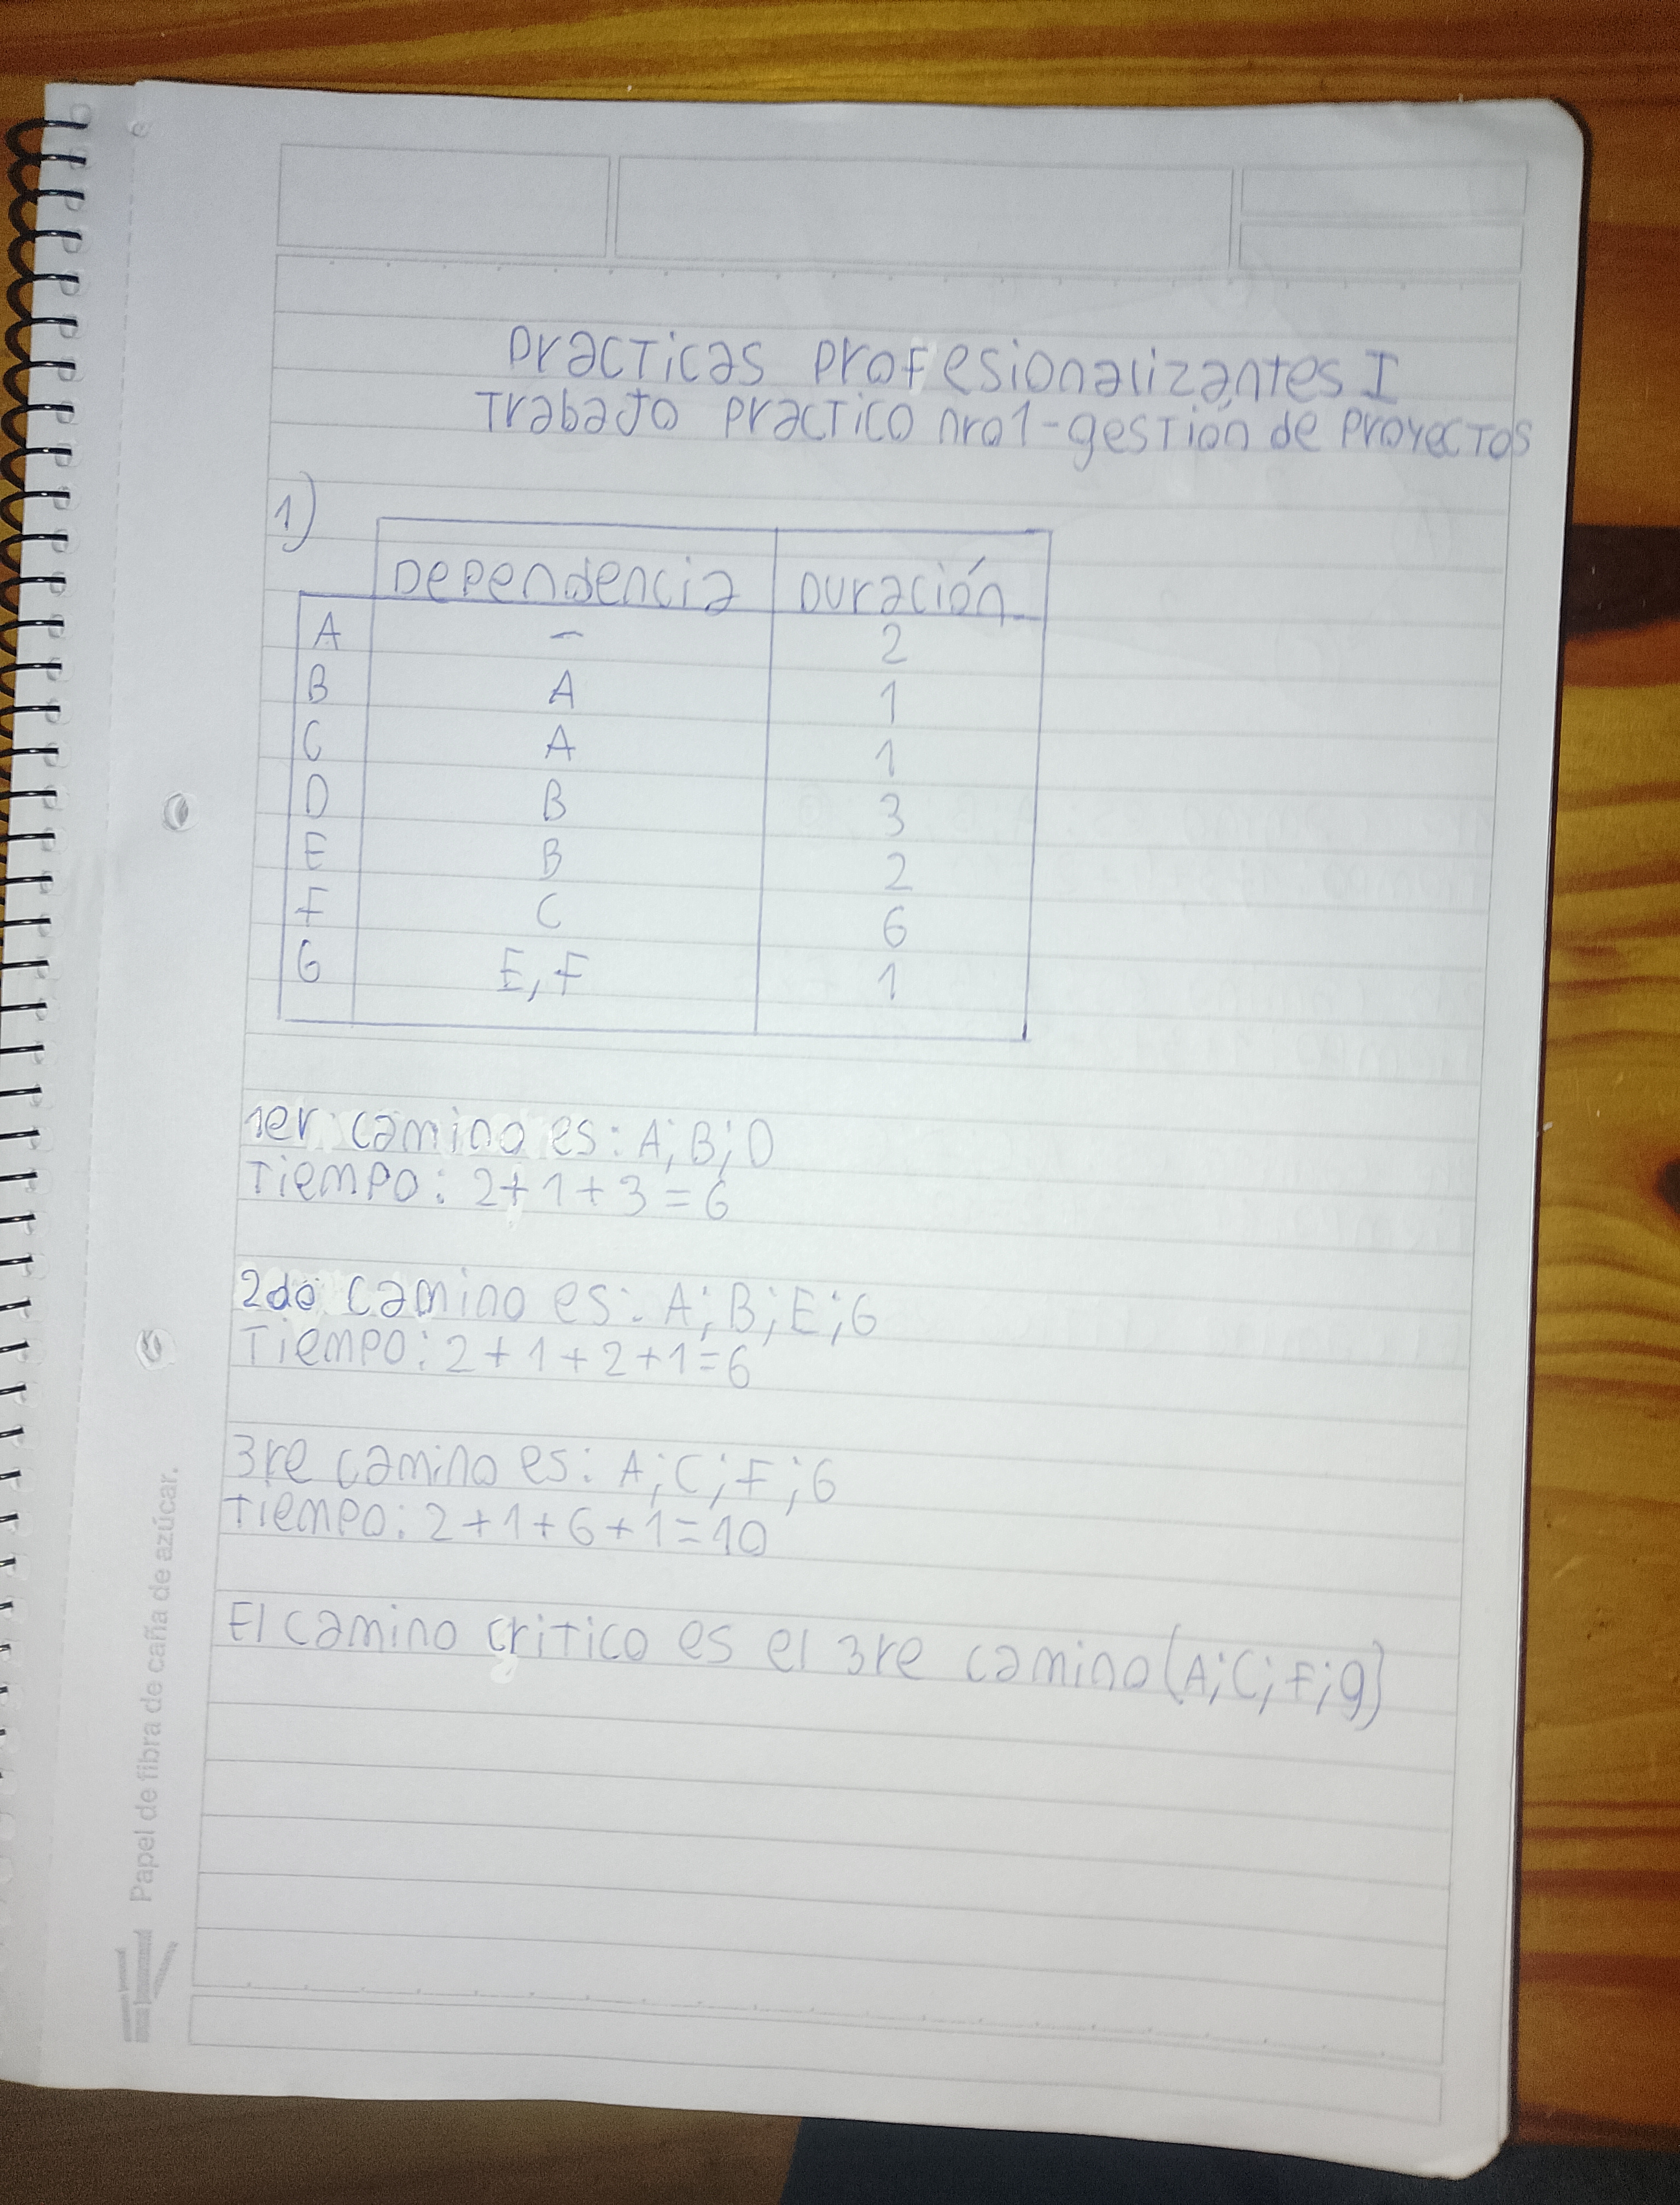 Practicas Profesionalizantes I
Trabajo practico nro1-gestión de Proyectos
1)
Dependencia Duración
A - 2
B A 1
C A 1
D B 3
E B 2
F C 6
G E,F 1
1er camino es: A;B;D
Tiempo: 2+1+3=6
2do camino es: A;B;E;G
Tiempo: 2+1+2+1=6
3re camino es: A;C;F;G
Tiempo: 2+1+6+1=10
El camino critico es el 3re camino (A;C;F;g)
Papel de fibra de caña de azúcar.